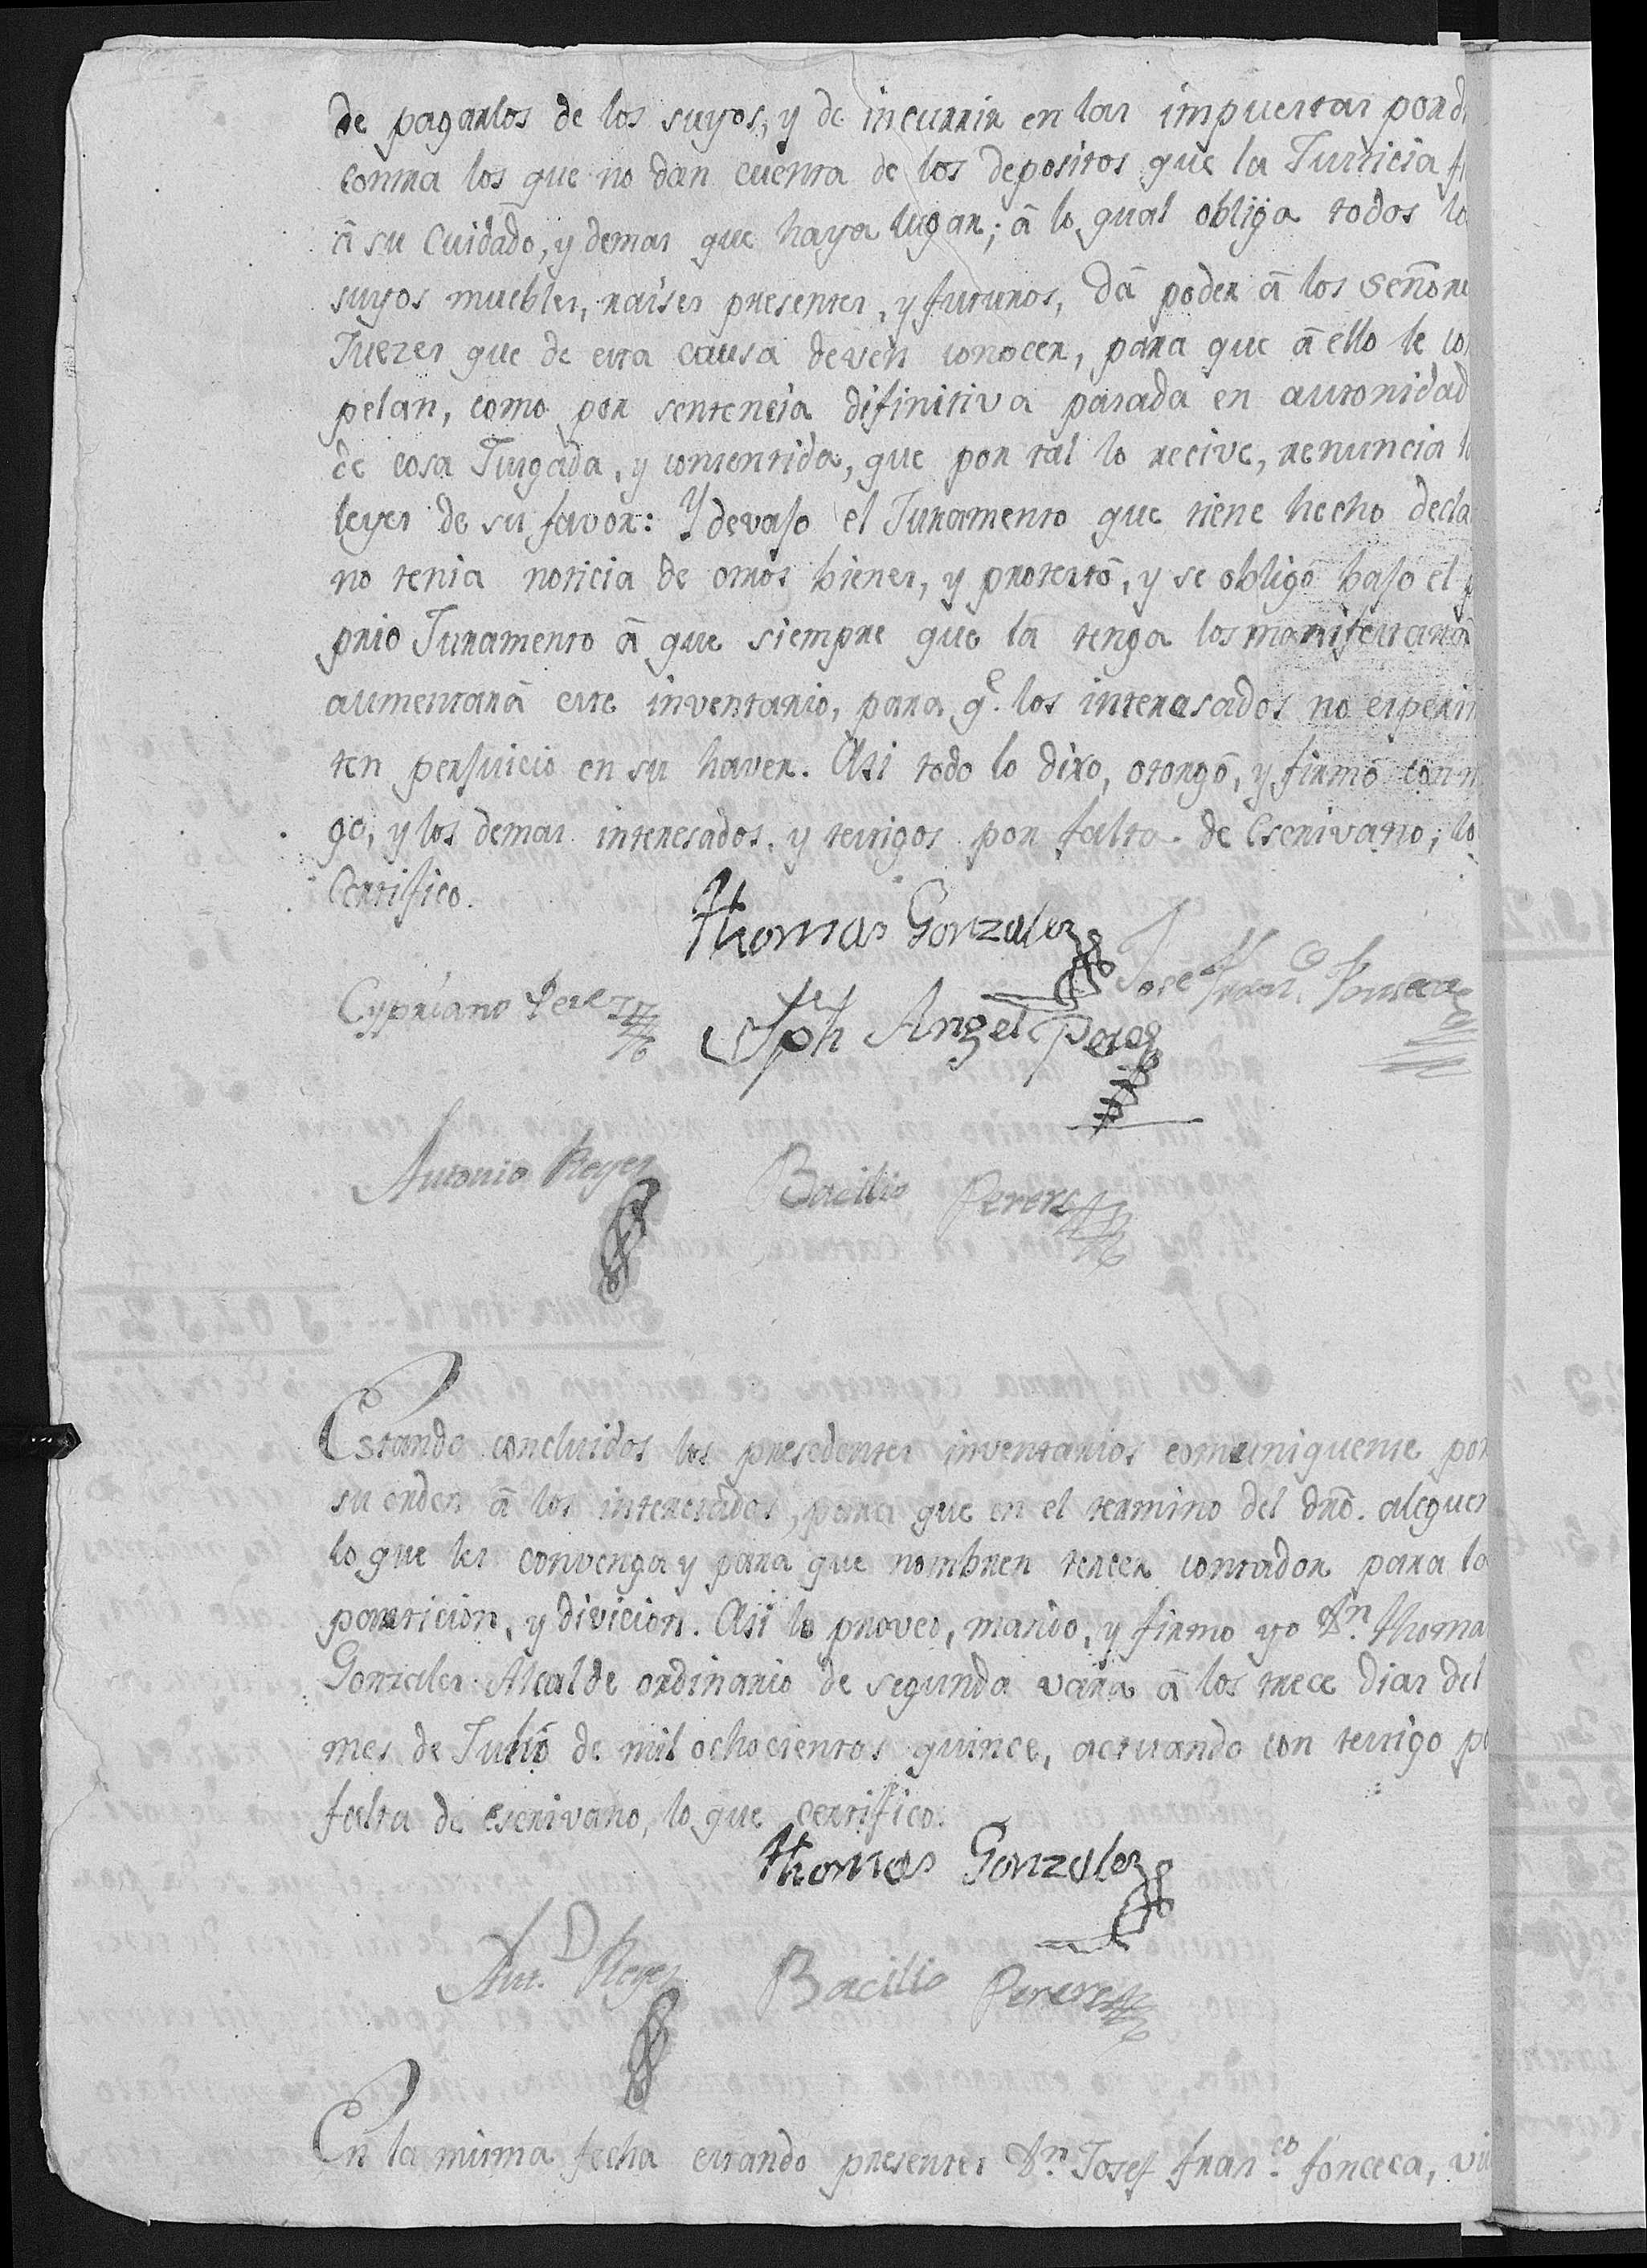 de pagarlos de los suyos, y de incurrir en las impuestas por d
contra los que no dan cuenta de los depositos que la Justicia f
â su cuidado, y demas que haya lugar; â lo qual obliga todos lo
suyos muebles, raises presentes, y futuros, dâ poder â los Señore
Juezes que de esta causa deven conocer, para que â ello le co
pelan, como por sentencia difinitiva pasada en autoridad
de cosa Jusgada, y consentida, que por tal lo recive, renuncia l
leyes de su favor: Y devajo el Juramento que tiene hecho decla
no tenia noticia de otros bienes, y protestô, y se obligô bajo el p
prio Juramento â que siempre que la tenga los manifestarâ
aumentarâ este inventario, para q.e los interesados no esperim
ten perjuicio en su haver. Asi todo lo dixo, otorgô, y firmô conm
go, y los demas interesados, y testigos por falta de Escrivano; lo
Certifico.
Thomas Gonzales
Jose Fran.co Fonseca
Cypriano Perez
Jph Angel Perez
Antonio Reyes
Bacilio Perere
Estando concluidos los presedentes inventarios comuniquense por
su orden â los interesados, para que en el termino del dro. aleguen
lo que les convenga y para que nombren tercer contador para la
partricion, y divicion. Asi lo proveo, mando, y firmo yo Dn. Thoma
Gonzales Alcalde ordinario de segunda vara â los trece dias del
mes de Julio de mil ochocientos quince, actuando con testigo p
falta de escrivano, lo que certifico.
Thomas Gonzales
Ant.o Reyes
Bacilio Perere
En la misma fecha estando presentes Dn. Josef Fran.co Fonceca, vi